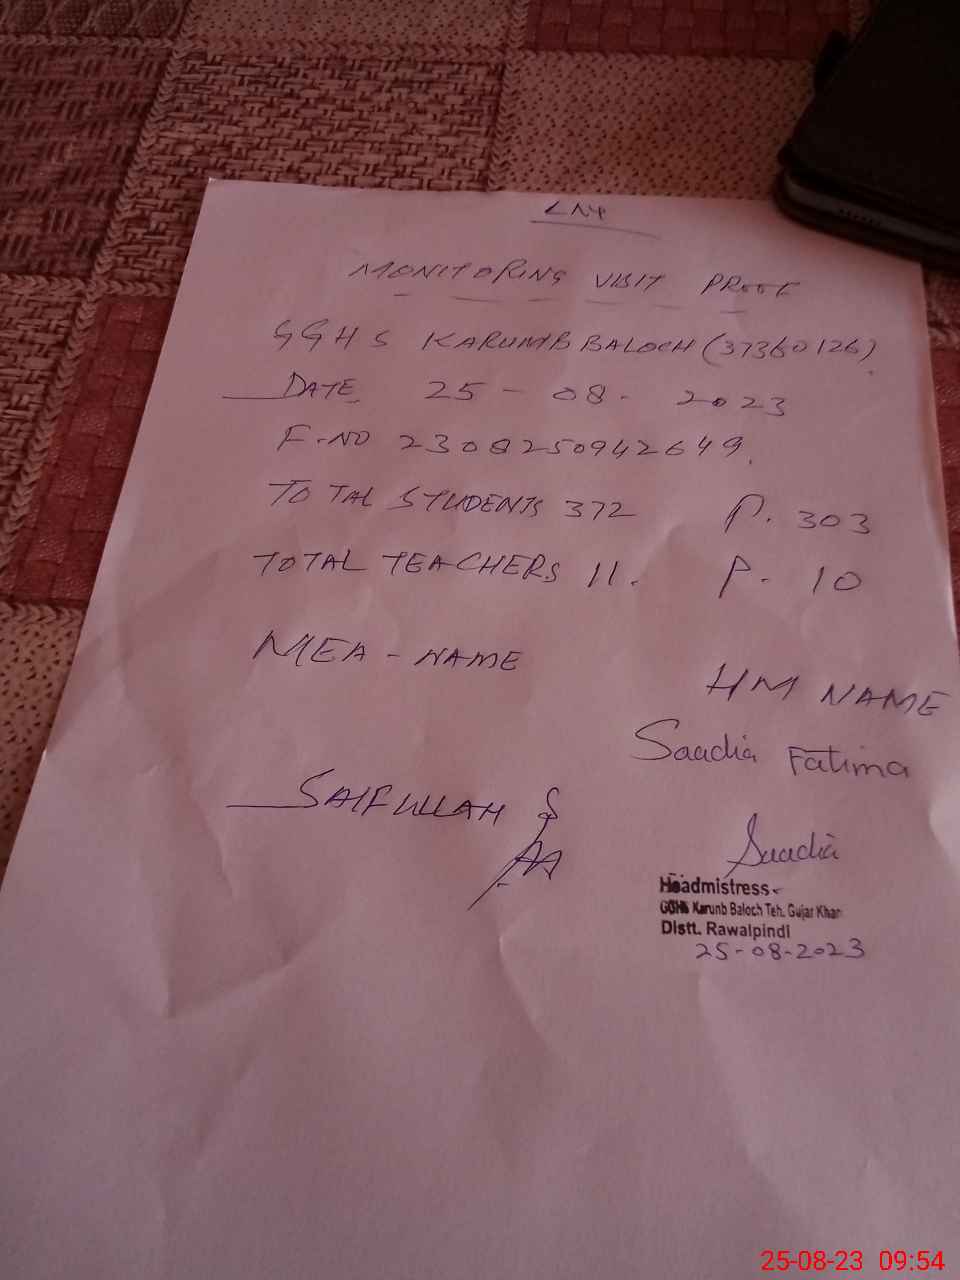 LNY
MONITORING VISIT PROOF
GGHS KARUMB BALOCH (37360126)
DATE 25-08-2023
F-NO 2308250942649.
TOTAL STUDENTS 372 P. 303
TOTAL TEACHERS 11. P. 10
MEA-NAME
HM NAME
Saadia Fatima
SAIFULLAH
Saadia
Headmistress
GGHS Karunb Baloch Teh. Gujar Khan
Distt. Rawalpindi
25-08-2023
25-08-23 09:54